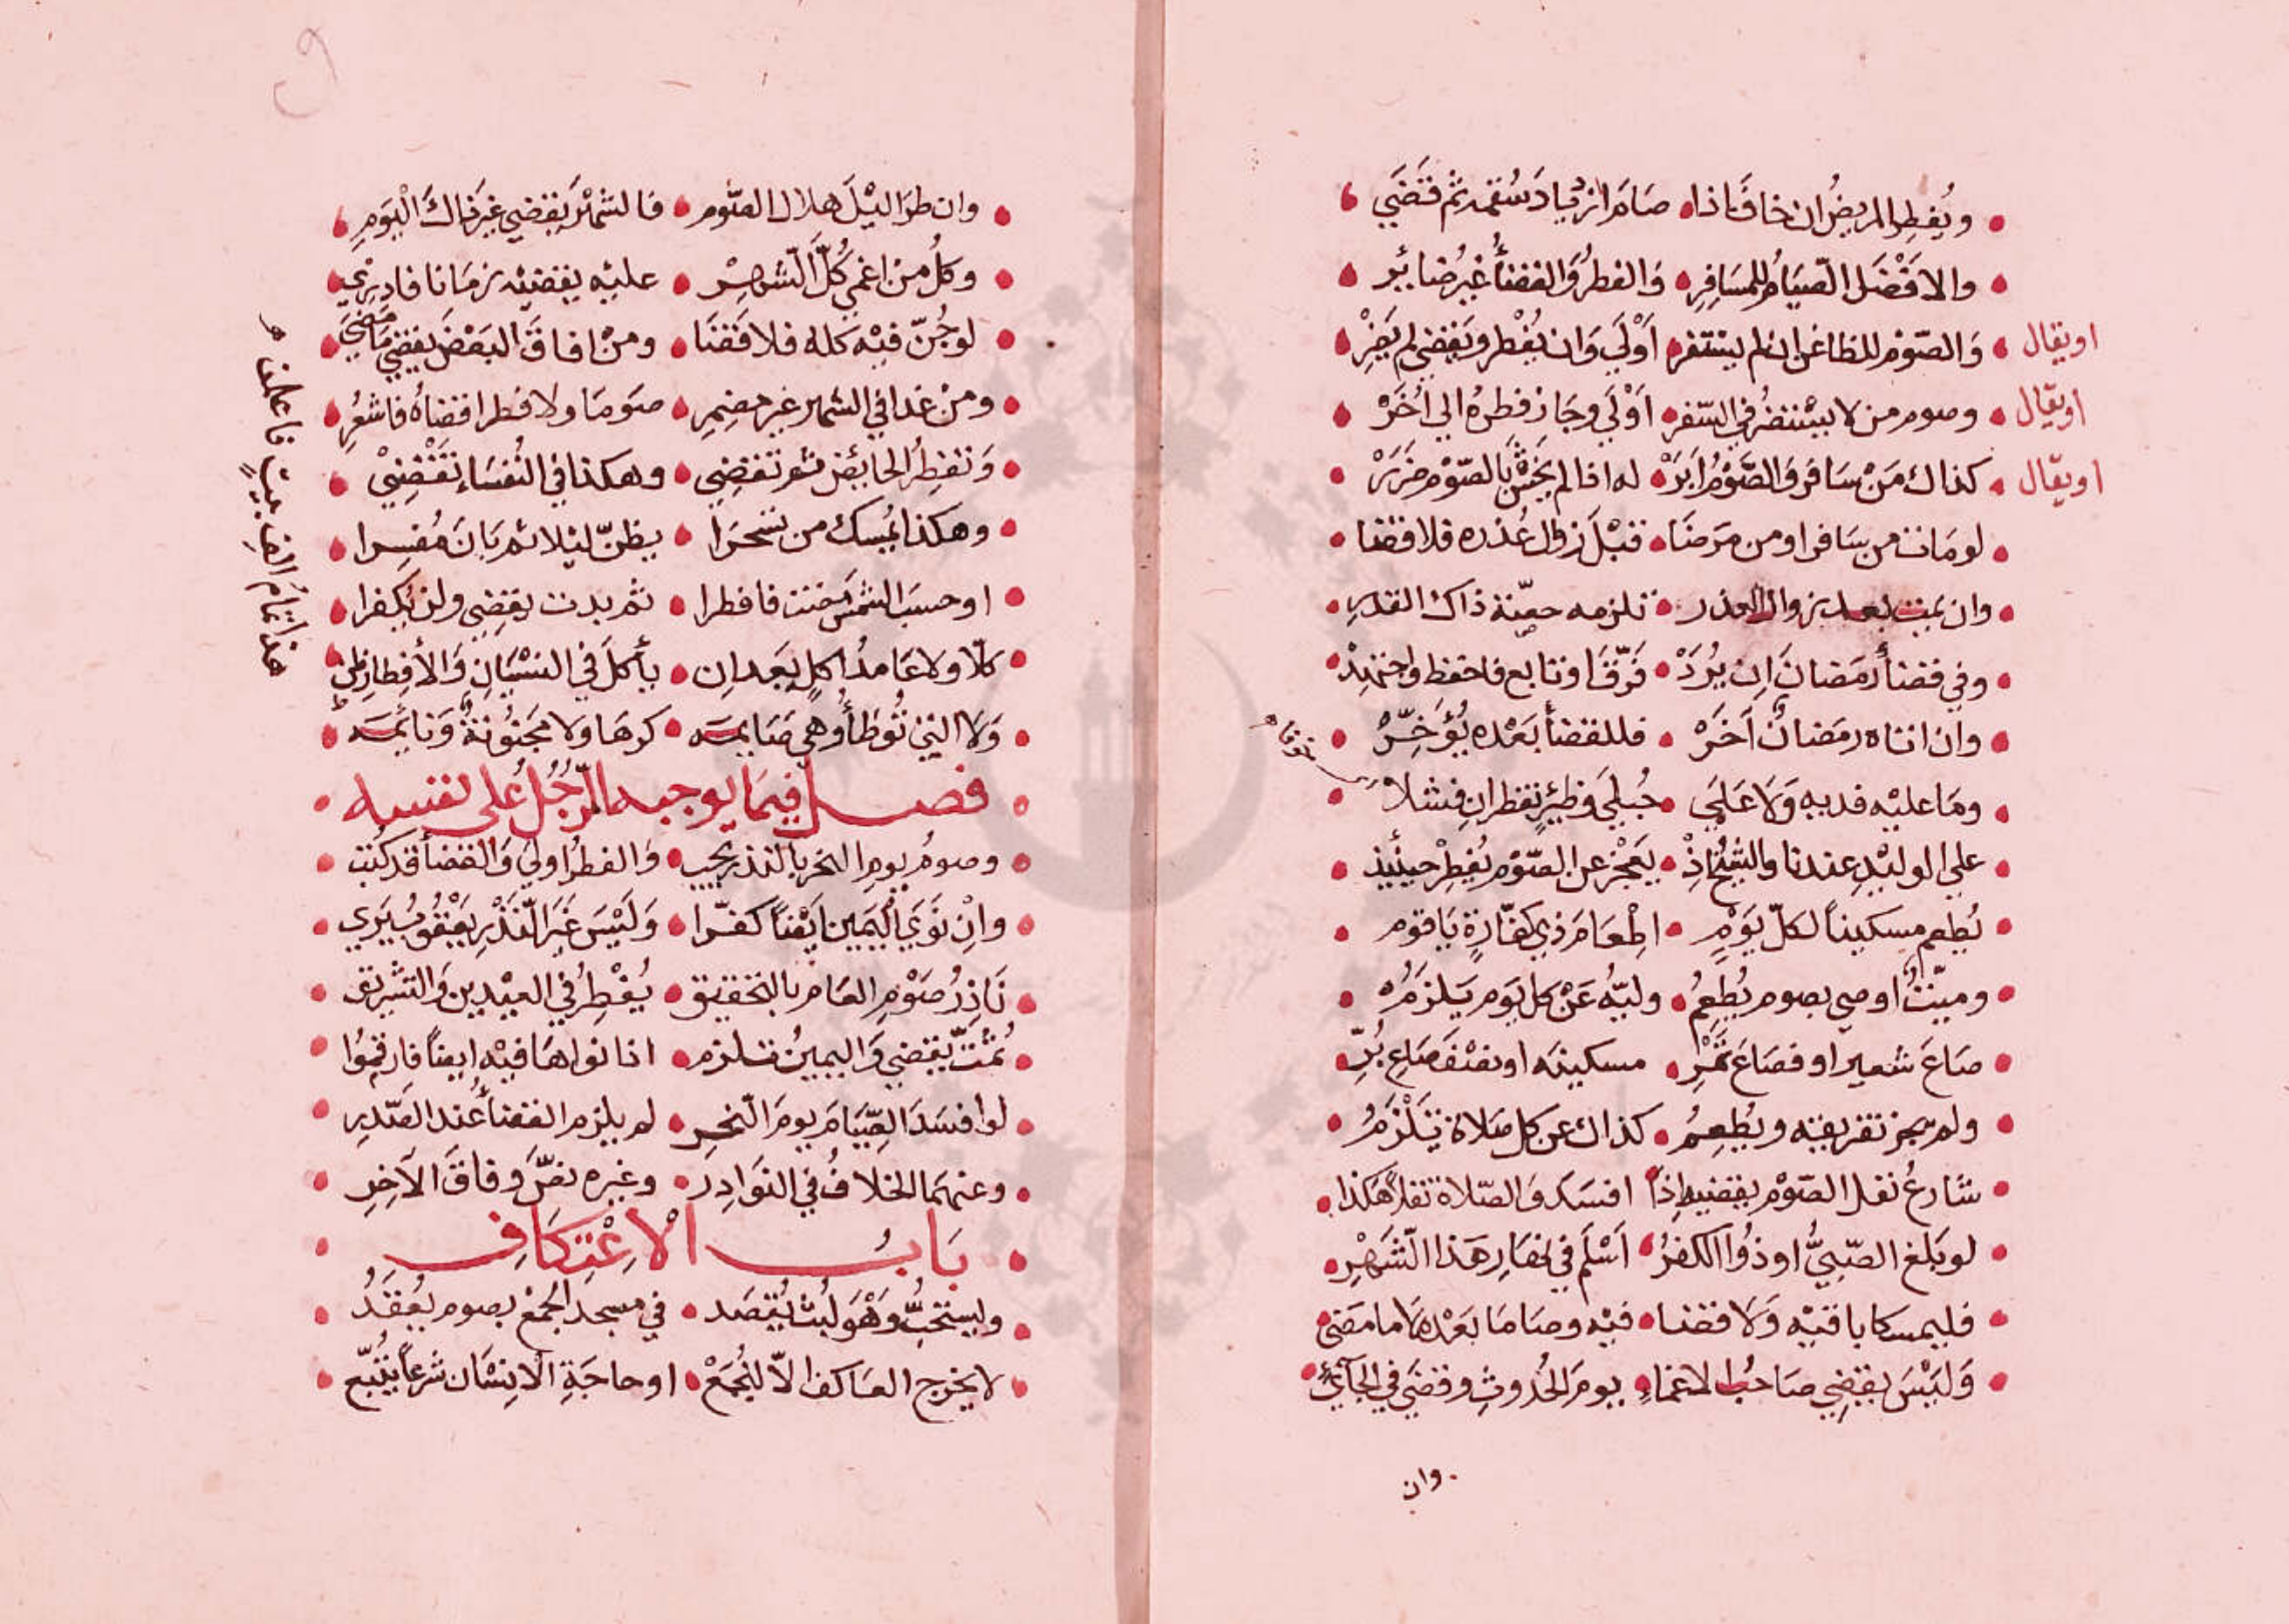 ويُفطِر المريضُ ان خافَ اذا صَامَ ازدِيادَ سُقمه ثم قَضَي
والافْضَل الصّيَامُ للمسَافِرِ وَالفطرُ وَالقضأُ غيرُ ضايرِ
اويقال وَالصّوْم للظاعن ان لم يستنفر اَوْلَي وَان يُفْطر ويَقضي لم يَضِرْ
اويقال وصوم من لا يستضرُ في السّفر اَوْلَي وجَاز فطرهُ الي اُخَرْ
اويقال كذاك مَنْ سَافر وَالصَّوْمُ اَبَرْ له اذا لم يخشَ بالصّوْم ضرَرْ
لو مَات من سَافر او من مَرضَا قبْلَ زوال عُذره فلا قضَا
وان يمت بعد زوال العذر تلزمه حصّة ذاك القدر
وفي قضأ رمَضانَ اِن يُرَدْ فَرّقَ او تابع فاحفظ واجتهِدْ
وان اتاه رمَضانٌ اَخَرْ فللقضأ بَعْده يُؤَخِّرْ
ومَا عليْه فديه وَلا عَلَي حُبلَي وظئرٍ تفطران فشلا
علي الوليْدِ عندنا والشيْخُ اِذْ يَعجْز عن الصّوْم يُفطِرْ حينئيذ
يُطعم مسكيناً لكلّ يَوْمٍ اطْعَامَ ذي كفّارةٍ يَا قوم
وميّتٌ اوصي بصوم يُطعِمُ وليّهُ عَنْ كل يَوم يَلزَمُهُ
صَاعَ شعير او فصَاعَ تَمْرِ مسكينَه او نصْفَ صَاعِ بُرِّ
ولم يجز تفريقه ويُطعِمُ كذاك عن كل صَلاة تَلْزَمُ
شارعُ نفل الصّوْم يقضيه اِذَا افسَد وَالصّلاة نفلاً هَكذا
لو بَلغ الصّبيُّ او ذُوا الكفرُ اَسْلم في نهَارِ هَذا الشَهْرِ
فليمسكا باقيْه وَلا قضَا فيْه وصَاما بَعْدهُ لا ما مَضي
وَليْسَ يقضِي صَاحبُ الاغماءِ يومَ الحُدوثِ وقضَي في الجآئي
وان
وان طرَا ليْلَ هلال الصّوم فالشهْرَ يقضي غيرَ ذاك اليَوْمِ
وكلُ من اغمي كُلَّ الشهرِ عليْه يقضيْه زمَانا فادرِي
لو جُنّ فيْه كله فلا قَضَا ومن افاقَ البَعْضَ يقضي مَا مَضَي
ومن غدا في الشهر غير مضمِرِ صَومَا ولا فطرا قضاهُ فاشعُرِ
وَتفطِرُ الحائض ثم تقضِي وهكذا في النُفسَاءِ تَقْضِيْ
وهكذا يُمسك من تسَحرَا يظنّ ليْلا ثم بَانَ مُفسِرا
او حسبَ الشمسَ مَضت فافطرا ثم بدت يقضِي ولن يُكفرا
كلّا ولا عَامدُ اكلٍ بَعد ان يأكلَ في النسْيَانِ وَالأفِطارِ ظن
وَلا التي تُوطأُ وهي صَايمَه كرهَا ولا مجَنوُنةٌ وَنايمَه
فصــل فيمَا يوجبه الرّجُلُ على نفسه
وصومُ يوم النحر بالنذر يجب وَالفطرُ اوليَ وَالقضأ قد كُتب
وانْ نَوَي اليَمين ايْضاً كفّرا وَليْسَ غَيرَ النّذْرِ يَعْقُوبُ يَرَي
نَاذِرُ صَوْمِ العَام بالتحقيق يُفْطِرُ في العيْدين وَالتشريق
ثمَّتَ يقضي وَاليمينُ تلزم اذا نواهَا فيْه ايضاً فارقمُوا
لو افسَدَ الصّيَامَ يومَ النحرِ لم يلزم القضأُ عند الصّدرِ
وعنهمَا الخلافُ في النوَادِر وغيره نصَّ وفاقَ الآخِرِ
بَابُ الاعْتِكَافِ
ويستحبُّ وَهْوَ لُبثٌ يُقصَد في مسجد الجُمْع بصوم يُعْقَدُ
لا يخرج العَاكف الاّ للجُمَعْ او حاجَةِ الانِسْان شرعاً يتُبّع
هذا تمامُ الفِ بيتٍ فاعلمَن